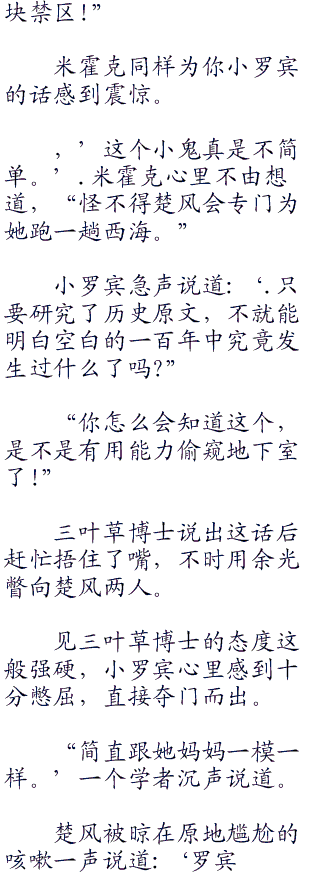 块禁区！”
米霍克同样为你小罗宾
的话感到震惊。
，’这个小鬼真是不简
单。’.米霍克心里不由想
道，“怪不得楚风会专门为
她跑一趟西海。”
小罗宾急声说道：‘.只
要研究了历史原文，不就能
明白空白的一百年中究竟发
生过什么了吗？”
“你怎么会知道这个，
是不是有用能力偷窥地下室
了！”
三叶草博士说出这话后
赶忙捂住了嘴，不时用余光
瞥向楚风两人。
见三叶草博士的态度这
般强硬，小罗宾心里感到十
分憋屈，直接夺门而出。
“简直跟她妈妈一模一
样。’一个学者沉声说道。
楚风被晾在原地尴尬的
咳嗽一声说道：‘罗宾